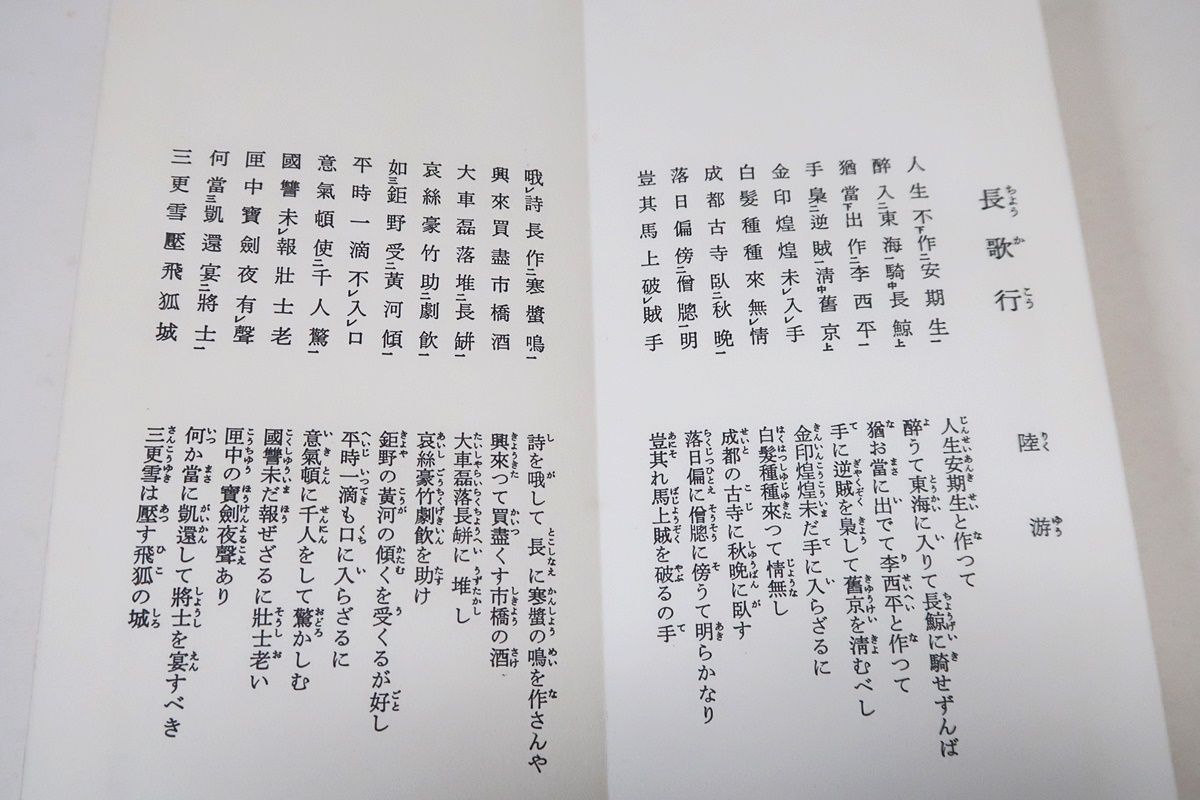 長歌行
陸游
人生不作安期生
醉入東海騎長鯨
猶當出作李西平
手梟逆賊淸舊京
金印煌煌未入手
白髮種種來無情
成都古寺臥秋晚
落日偏傍僧牕明
豈其馬上破賊手
人生安期生と作つて
醉うて東海に入りて長鯨に騎せずんば
猶お當に出でて李西平と作つて
手に逆賊を梟して舊京を淸むべし
金印煌煌未だ手に入らざるに
白髮種種來つて情無し
成都の古寺に秋晚に臥す
落日偏に僧牕に傍うて明らかなり
豈其れ馬上賊を破るの手
哦詩長作寒螿鳴
興來買盡市橋酒
大車磊落堆長缾
哀絲豪竹助劇飮
如鉅野受黃河傾
平時一滴不入口
意氣頓使千人驚
國讐未報壯士老
匣中寶劍夜有聲
何當凱還宴將士
三更雪壓飛狐城
詩を哦して長に寒螿の鳴を作さんや
興來つて買盡くす市橋の酒
大車磊落長缾に堆し
哀絲豪竹劇飮を助け
鉅野の黃河の傾くを受くるが好し
平時一滴も口に入らざるに
意氣頓に千人をして驚かしむ
國讐未だ報ぜざるに壯士老い
匣中の寶劍夜聲あり
何か當に凱還して將士を宴すべき
三更雪は壓す飛狐の城